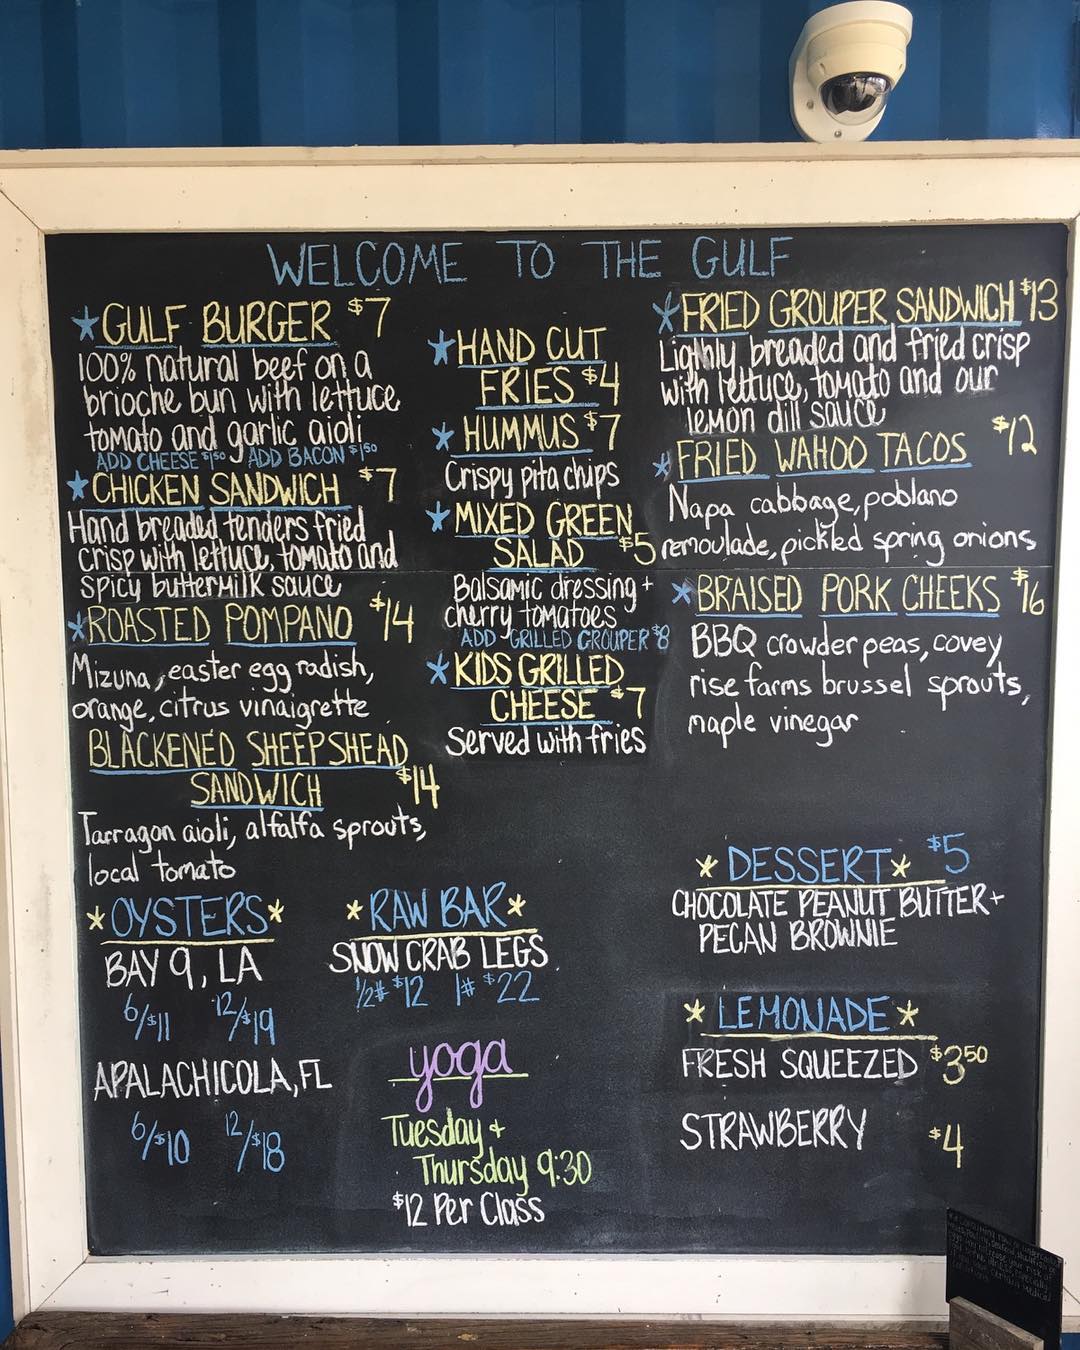 WELCOME TO THE GULF
GULF BURGER $7
100% natural beef on a
brioche bun with lettuce
tomato and garlic aioli
ADD CHEESE $1.50 ADD BACON $1.50
CHICKEN SANDWICH $7
Hand breaded tenders fried
crisp with lettuce, tomato and
spicy buttermilk sauce
ROASTED POMPANO $14
Mizuna, easter egg radish,
orange, citrus vinaigrette
BLACKENED SHEEPSHEAD
SANDWICH $14
Tarragon aioli, alfalfa sprouts,
local tomato
HAND CUT
FRIES $4
HUMMUS $7
Crispy pita chips
MIXED GREEN
SALAD $5
Balsamic dressing +
cherry tomatoes
ADD GRILLED GROUPER $8
KIDS GRILLED
CHEESE $7
Served with fries
FRIED GROUPER SANDWICH $13
Lighly breaded and fried crisp
with lettuce, tomato and our
lemon dill sauce
FRIED WAHOO TACOS $12
Napa cabbage, poblano
remoulade, pickled spring onions
BRAISED PORK CHEEKS $16
BBQ crowder peas, covey
rise farms brussel sprouts,
maple vinegar
*OYSTERS*
BAY 9, LA
6/$11 12/$19
APALACHICOLA, FL
6/$10 12/$18
*RAW BAR*
SNOW CRAB LEGS
1/2# $12 1# $22
yoga
Tuesday +
Thursday 9:30
$12 Per Class
*DESSERT* $5
CHOCOLATE PEANUT BUTTER +
PECAN BROWNIE
*LEMONADE*
FRESH SQUEEZED $3.50
STRAWBERRY $4